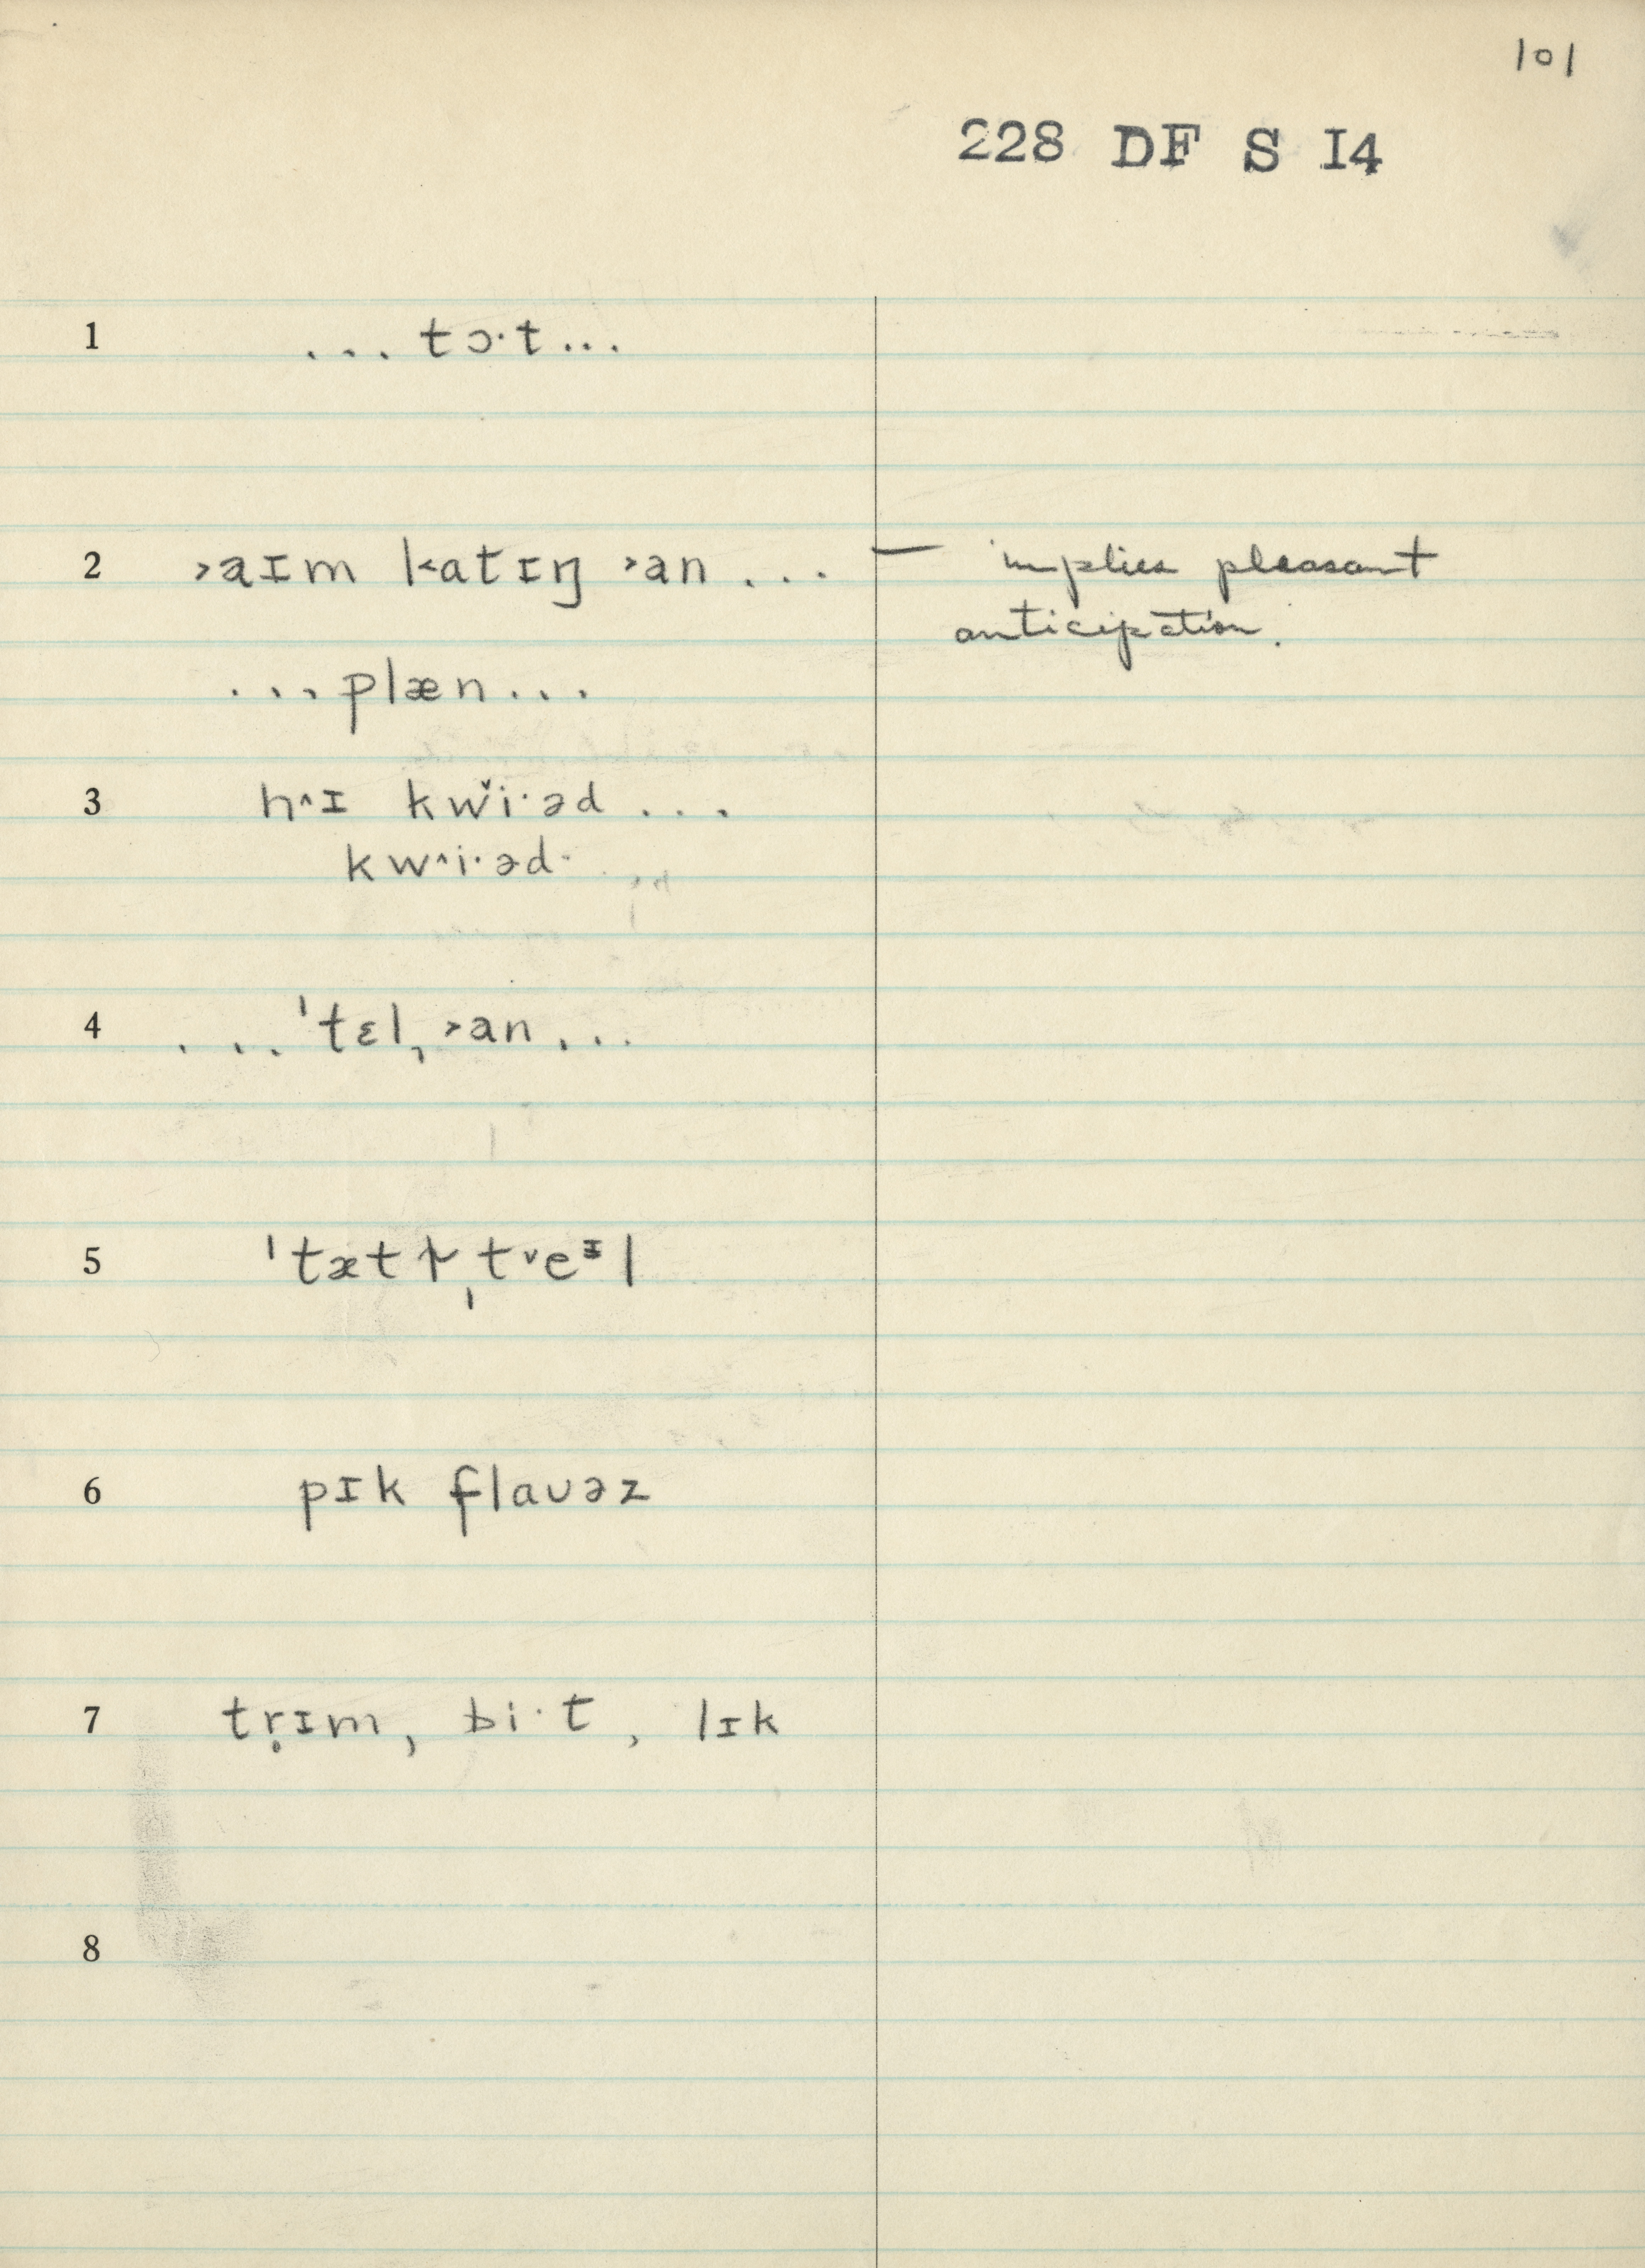 101
228 DF S I4
1 ...tɔ·t...
2 ˃aɪm katɪŋ ˃an ... — implies pleasant
anticipation.
...plæn...
3 h˄ɪ kw˅i·əd ...
kw˄i·əd·
4 ...ˈtɛl, ˃an...
5 ˈtætḷˌt˅eᵻl
6 pɪk flaʊəz
7 tr̥ɪm, bi·t, lɪk
8